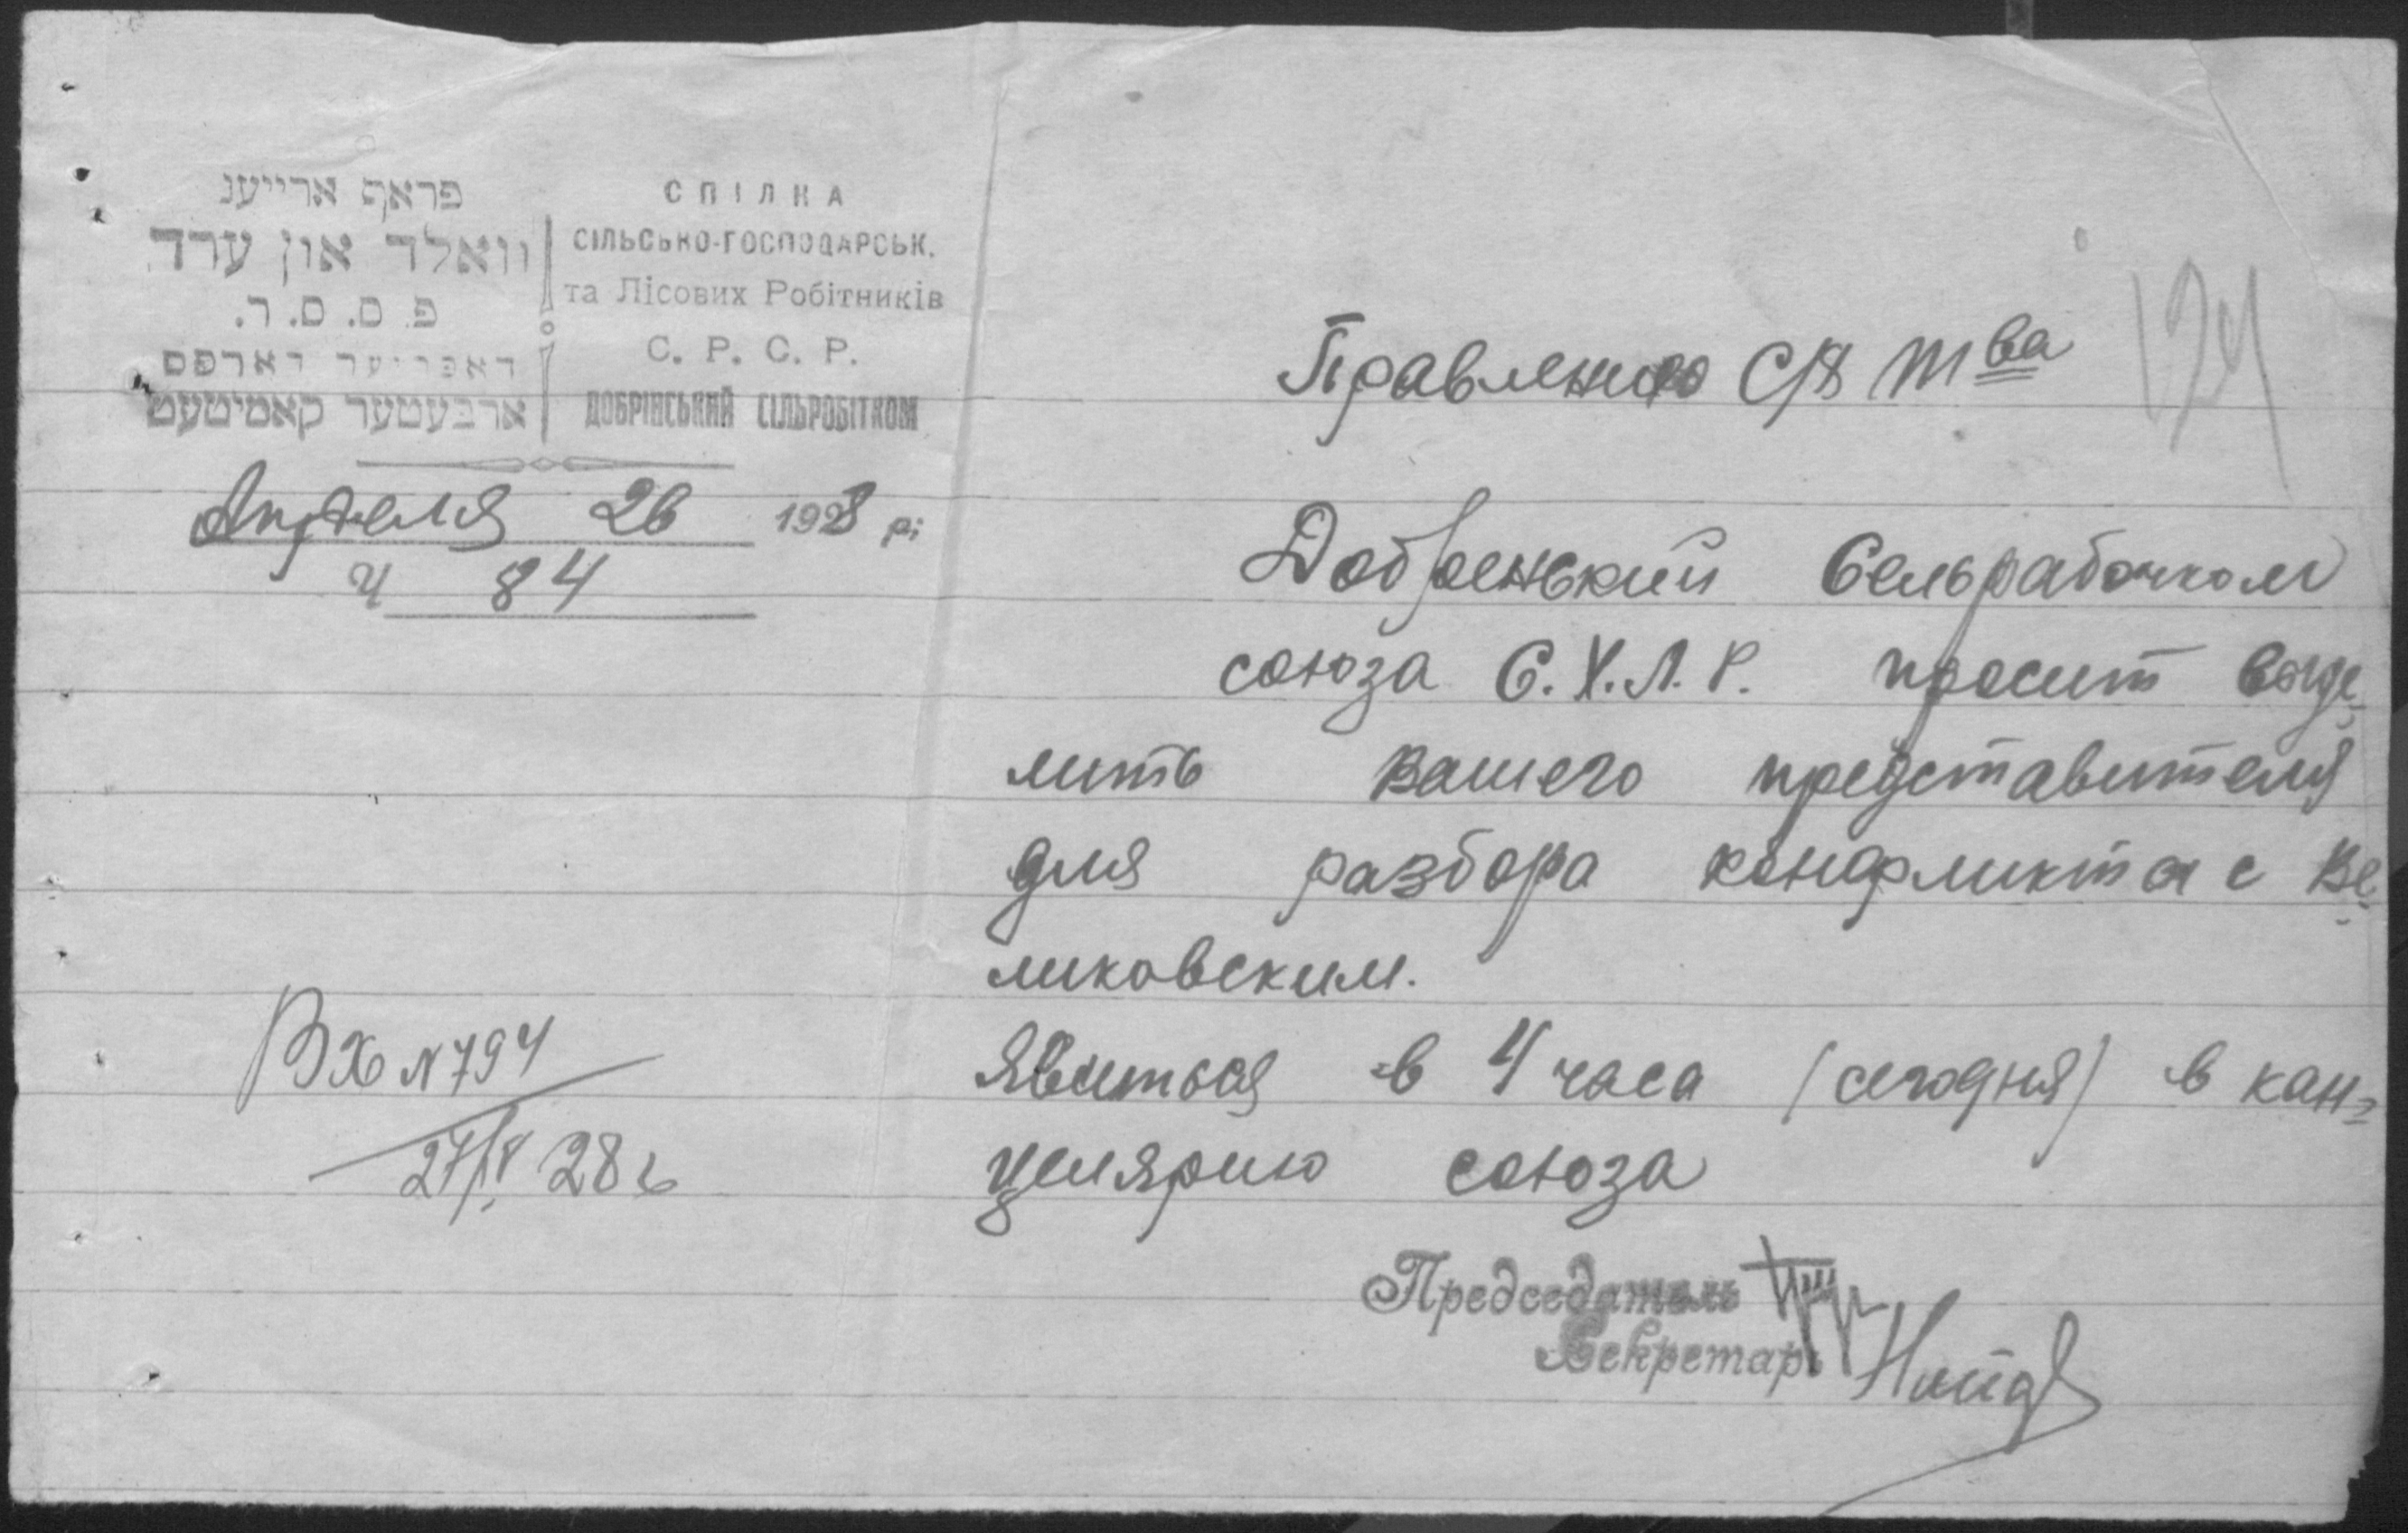 פראפ אריייענ
וואלד און ערד
פ. ס. ס. ר.
דאברי׳ער דארפס
ארבעטער קאמיטעט
СПІЛКА
СІЛЬСЬКО-ГОСПОДАРСЬК.
та Лісових Робітників
С. Р. С. Р.
ДОБРІНСЬКИЙ СІЛЬРОБІТКОМ
Апреля 26 1928 р.
Ч 84
124
Правлению С/Х Тва
Добренький Сельрабочком
союза С.Х.Л.Р. просит выде-
лить вашего представителя
для разбора конфликта с Ве-
ликовским.
Явиться в 4 часа (сегодня) в кан-
целярию союза
Вх N 794
27/IV 28 г
Председатель
Секретарь